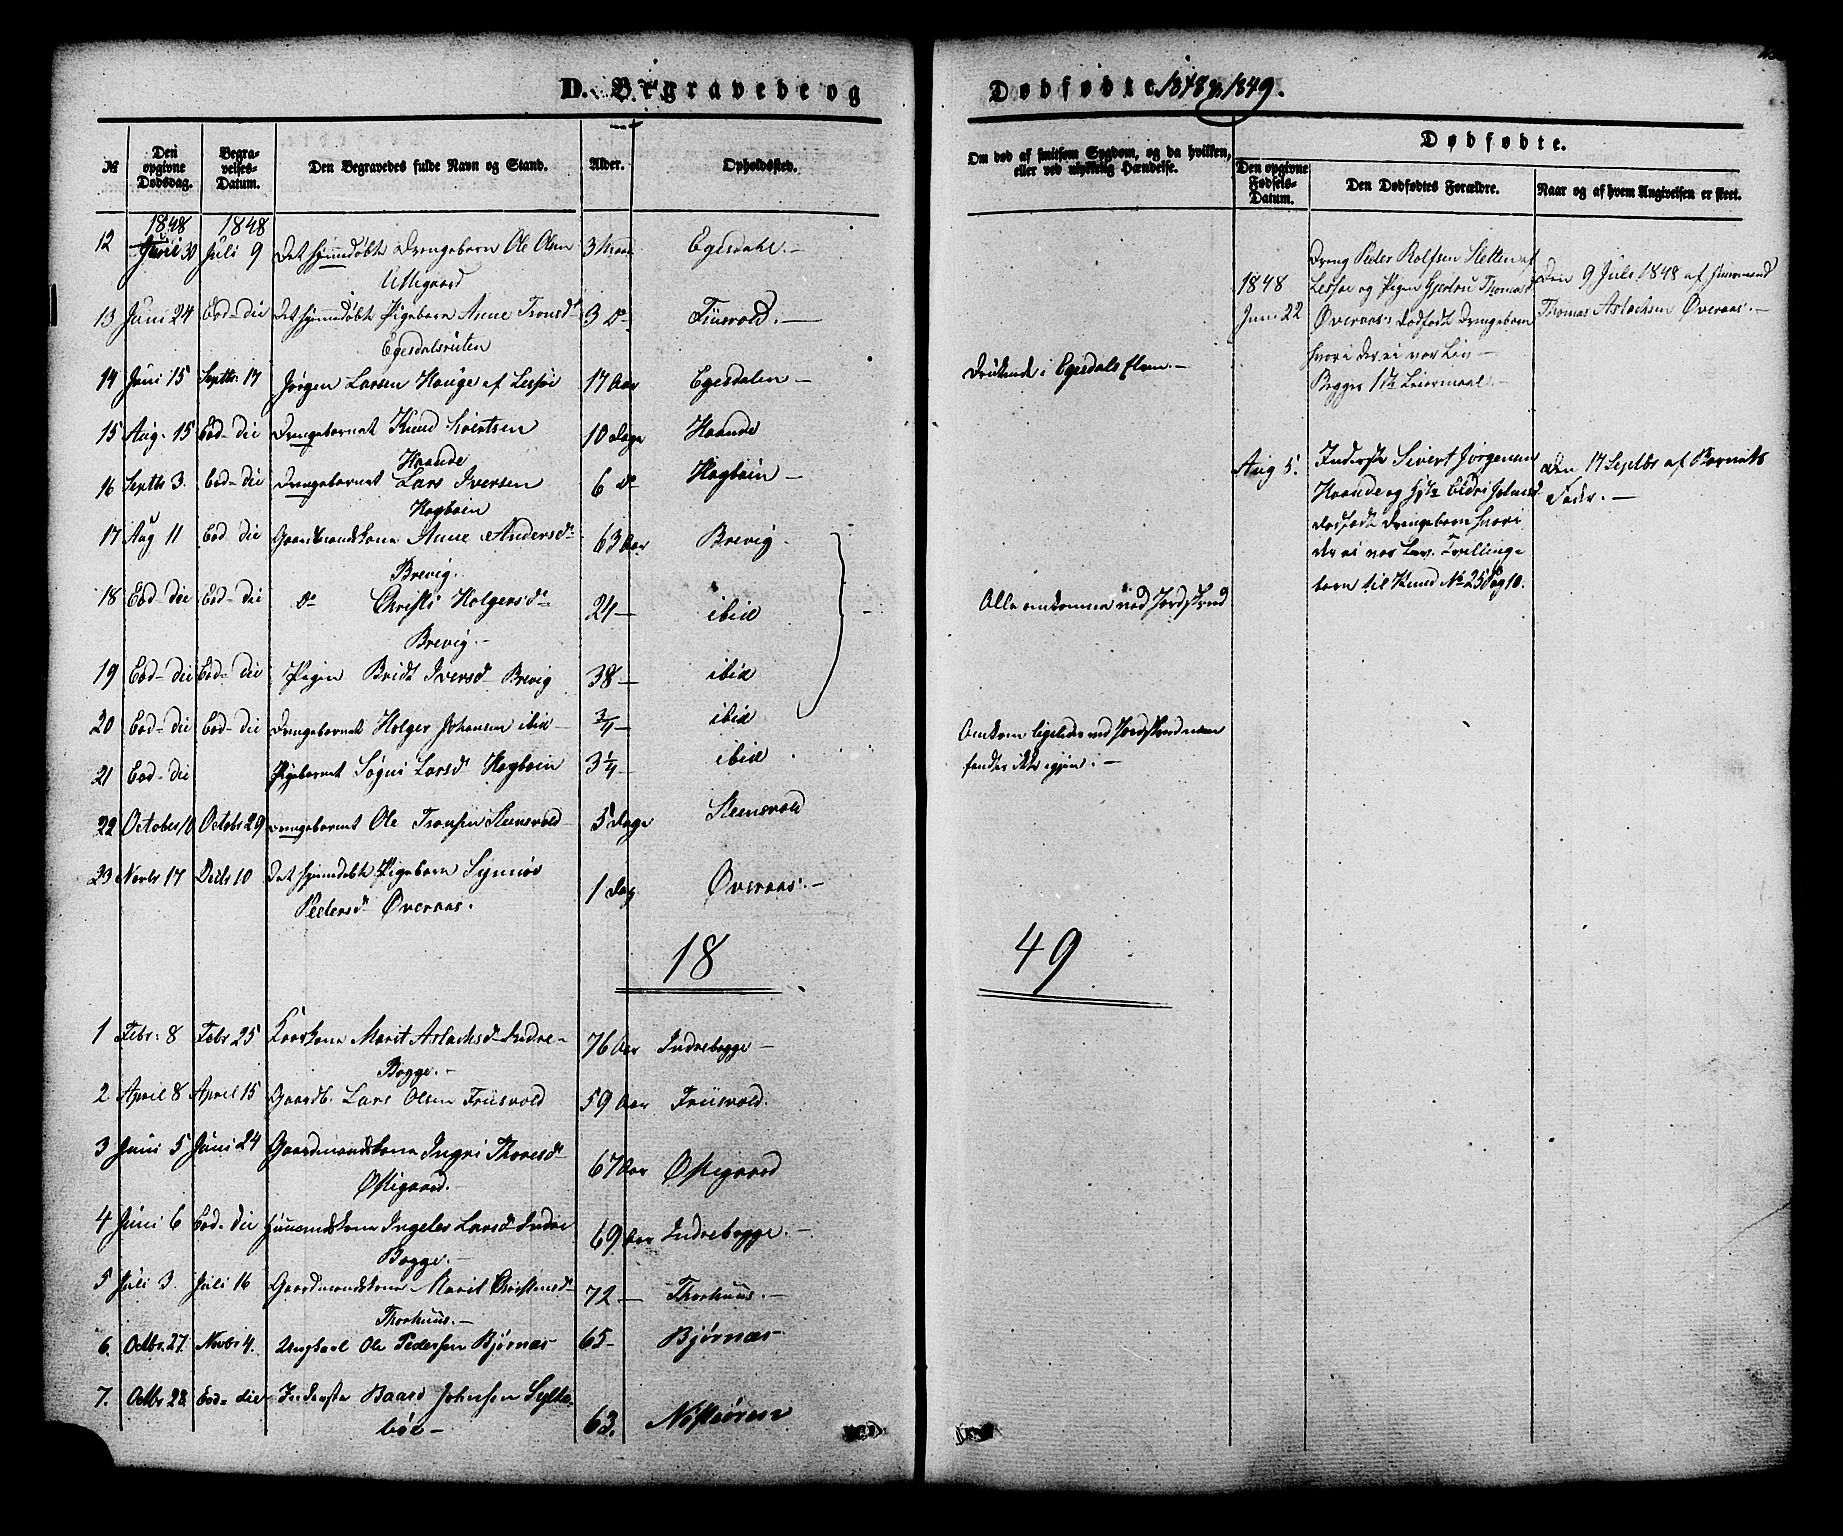 D. Begravede og
Dødfødte 1848 & 1849.
№
Den opgivne Dødsdag.
Begravelses-Datum.
Den Begravedes fulde Navn og Stand.
Alder.
Opholdssted.
Om død af smitsom Sygdom, og da hvilken, eller ved ulykkelig Hændelse.
Dødfødte.
Den opgivne Fødsels-Datum.
Den Dødfødtes Forældre.
Naar og af hvem Angivelsen er skeet.
1848 1848
12 Juni 30 Juli 9 Det hjemmedøbte Drengebarn Ole Olsen 3 Egesdahl.-
13 Juni 24 Eod- die Det hjemmedøbte Pigebarn Anne Tronsd 3 do
Egesdalsrøten
14 Juni 15 Septbr. 17 Jørgen Larsen Hauge af Lesjø 17 Aar Egesdalen - Druknede i Egesdals Elven.-
15 Aug. 15 Eod- die Drengebarnet Knud Sivertsen 10 Dage Haande
Haande
16 Septbr 3. Eod- die Drengebarnet Lars Iversen 6 do Hagbøin -
Hagbøin
17 Aug 11 Eod- die Gaardmandskone Anne Andersd 63 Aar Brevig.
Brevig.
18 Eod- die Eod- die do Christi Holgersd 24 - ibid Alle omkomne ved Jordskred
Brevig.-
19 Eod- die Eod- die Pigen Bridt Iversd Brevig 38 - ibid
20 Eod- die Eod- die Drengebarnet Holger Johansen ibid 3/4 - ibid
21 Eod- die Pigebarnet Søgni Larsd Hagbøin 3 1/4 - ibid
Omkom ligeledes ved Jordskred men
fandes ikke igjen.-
22 October 10 Octobr 29 Drengebarnet Ole Tronsen Steensvold 5 Dage Steensvold
23 Novbr 17 Decbr 10 Det hjemmedøbte Pigebarn Synnøv 1 Dag Øveraas.-
Pedersd Øveraas.
1848
Juni 22
Dreng Peder Rolfsen Sletten af
Lesjøe og Pigen Gjertru Thomasd
Øveraas's dødfødt Drengebarn
hvori der ei var Liv -
Begges 1ste Leiermaal.-
Den 9 Juli 1848 af Huusmand
Thomas Aslachsen Øveraas.-
Aug 5.
Inderste Sivert Jørgensen
Haande og Hstr Eldri Johnsd
dødfødt Drengebarn hvori
der ei var Liv. Tvillinge
barn til Knud No 25 Pag 10.
Den 17 Septbr af Barnets
Fader.-
18 49
1 Febr: 8 Febr 25 Kaarkone Marit Aslachsd Indre- 76 Aar Indrebogge -
Bogge.-
2 April 8 April 15 Gaardb. Lars Olsen Friisvold 59 Aar Friisvold.
3 Juni 5 Juni 24 Gaardmandskone Ingri Thoresd 67 Aar Østigaard
Østigaard.
4 Juni 6 Eod- die Huusmandskone Ingelev Larsd Indre 69 Aar Indrebogge.-
Bogge.-
5 Juli 3. Juli 16 Gaardmandskone Marit Christensd 72 - Thorhuus.-
Thorhuus.-
6. Octbr. 27. Novbr 4. Ungkarl Ole Pedersen Bjørnæs 65 - Bjørnæs
7. Octbr 28 Eod- die Inderste Baard Johnsen Sylte- 63.
bøe -